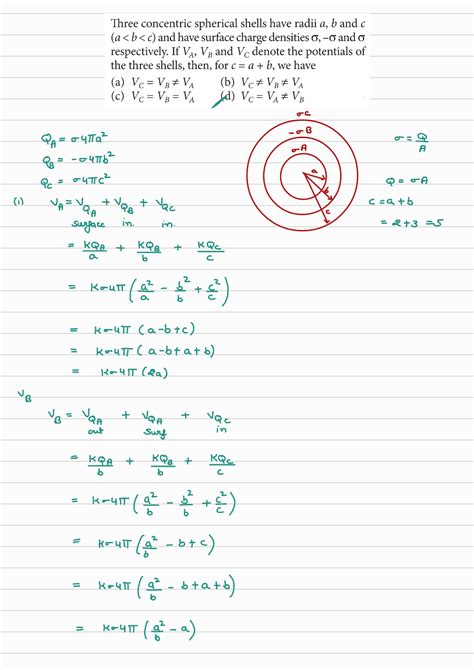 Three concentric spherical shells have radii a, b and c
(a < b < c) and have surface charge densities σ, –σ and σ
respectively. If V_A, V_B and V_C denote the potentials of
the three shells, then, for c = a + b, we have
(a) V_C = V_B ≠ V_A (b) V_C ≠ V_B ≠ V_A
(c) V_C = V_B = V_A (d) V_C = V_A ≠ V_B
σC
-σB
σA
a
b
c
Q_A = σ4πa²
Q_B = -σ4πb²
Q_C = σ4πc²
σ = Q/A
Q = σA
c = a+b
= 2+3 = 5
(1) V_A = V_QA + V_QB + V_QC
surface in. in.
= KQ_A/a + KQ_B/b + KQ_C/c
= Kσ4π (a²/a - b²/b + c²/c)
= Kσ4π (a-b+c)
= Kσ4π (a-b+a+b)
= Kσ4π (2a)
V_B
V_B = V_QA + V_QA + V_QC
out surf in
= KQ_A/b + KQ_B/b + KQ_C/c
= Kσ4π (a²/b - b²/b + c²/c)
= Kσ4π (a²/b - b + c)
= Kσ4π (a²/b - b + a + b)
= Kσ4π (a²/b - a)